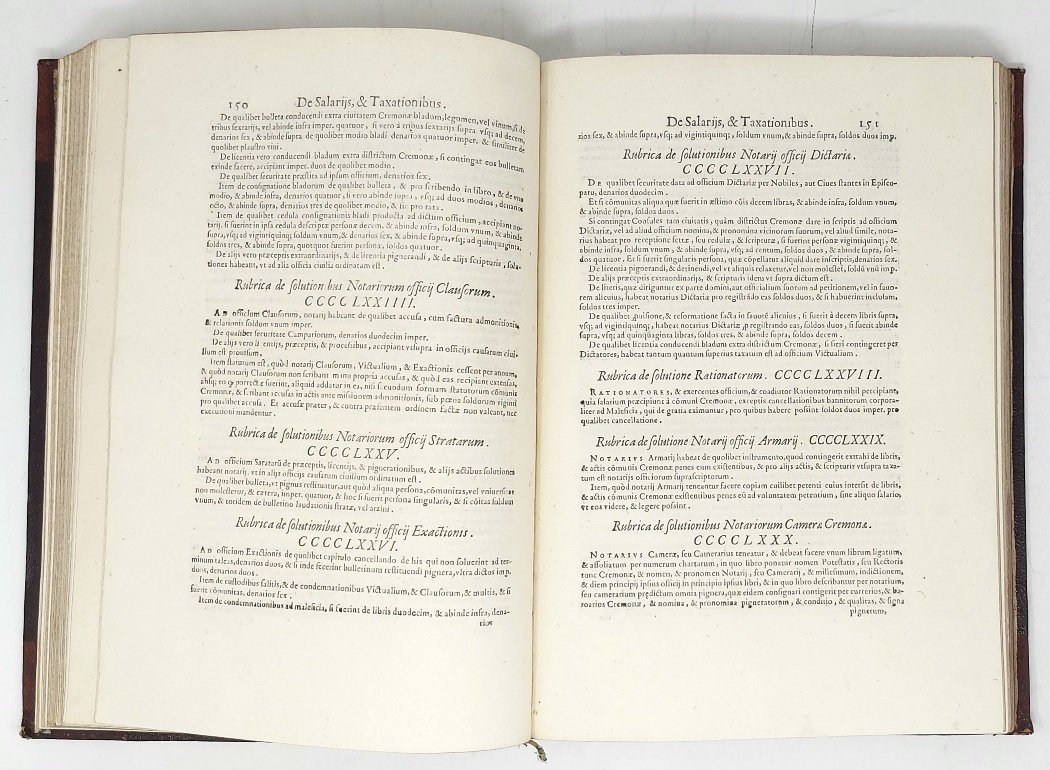 150 De Salarijs, & Taxationibus.
De qualibet bulleta conducendi extra ciuitatem Cremonæ bladum, legumen, vel vinum, si de
tribus sextarijs, vel abinde infra imper. quatuor, si vero à tribus sextarijs supra vsq; ad decem,
denarios sex, & abinde supra de quolibet modio bladi denarios quatuor imper. & similiter de
quolibet plaustro vini.
De licentia vero conducendi bladum extra districtum Cremonæ, si contingat eos bulletam
exinde facere, accipiant imper. duos de quolibet modio.
De qualibet securitate præstita ad ipsum officium, denarios sex.
Item de consignatione bladorum de qualibet bulleta, & pro scribendo in libro, & de vno
modio, & abinde infra, denarios quatuor, si vero abinde supra, vsq; ad duos modios, denarios
octo, & abinde supra, denarios tres de quolibet modio, & sic pro rata.
Item de qualibet cedula consignationis bladi producta ad dictum officium, accipiant no-
tarij, si fuerint in ipsa cedula descriptæ personæ decem, & abinde infra, soldum vnum, & abinde
supra, vsq; ad vigintiquinq; soldum vnum, & denarios sex, & abinde supra, vsq; ad quinquaginta,
soldos tres, & abinde supra, quotquot fuerint personæ, soldos quatuor.
De alijs vero præceptis extraordinarijs, & de licentia pignerandi, & de alijs scripturis, solu-
tiones habeant, vt ad alia officia ciuilia ordinatum est.
Rubrica de solution bus Notariorum officij Clausorum.
CCCCLXXIIII.
AD officium Clausorum, notarij habeant de qualibet accusa, cum factura admonitionis,
& relationis soldum vnum imper.
De qualibet securitate Campariorum, denarios duodecim imper.
De alijs vero licentijs, præceptis, & processibus, accipiant vtsupra in officijs causarum ciui-
lium est prouisum.
Item statutum est, quòd notarij Clausorum, Victualium, & Exactionis cessent per annum,
& quòd notarij Clausorum non scribant manu propria accusas, & quòd eas recipiant extensas,
absq; eo φ porrectæ fuerint, aliquid addatur in ea, nisi secundum formam statutorum cōmunis
Cremonæ, & scribant accusas in actis ante missionem admonitionis, sub pœna soldorum viginti
pro qualibet accusa. Et accusæ præter, & contra præsentem ordinem factæ non valeant, nec
executioni mandentur.
Rubrica de solutionibus Notariorum officij Stratarum.
CCCCLXXV.
AD officium Saratarū de præceptis, licentijs, & pignerationibus, & alijs actibus solutiones
habeant notarij, vt in alijs officijs causarum ciuilium ordinatum est.
De qualibet bulleta, vt pignus restituatur, aut quòd aliqua persona, cōmunitas, vel vniuersitas
non molestetur, & cætera, imper. quatuor, & hoc si fuerit persona singularis, & si cōitas soldum
vnum, & totidem de bulletino laudationis stratæ, vel arzini.
Rubrica de solutionibus Notarij officij Exactionis.
CCCCLXXVI.
AD officium Exactionis de quolibet capitulo cancellando de his qui non soluerint ad ter-
minum taleas, denarios duos, & si inde fecerint bulletinum restituendi pignera, vltra dictos imp.
duos, denarios duos.
Item de custodibus salitis, & de condemnationibus Victualium, & Clausorum, & multis, & si
fuerit cōmunitas, denarios sex.
Item de condemnationibus ad maleficia, si fuerint de libris duodecim, & abinde infra, dena-
rios
De Salarijs, & Taxationibus. 151
rios sex, & abinde supra, vsq; ad vigintiquinq; soldum vnum, & abinde supra, soldos duos imp.
Rubrica de solutionibus Notarij officij Dictariæ.
CCCCLXXVII.
DE qualibet securitate data ad officium Dictariæ per Nobiles, aut Ciues stantes in Episco-
patu, denarios duodecim.
Et si cōmunitas aliqua quæ fuerit in æstimo cōis decem libras, & abinde infra, soldum vnum,
& abinde supra, soldos duos.
Si contingat Consules tam ciuitatis, quàm districtus Cremonæ dare in scriptis ad officium
Dictariæ, vel ad aliud officium nomina, & pronomina vicinorum suorum, vel aliud simile, nota-
rius habeat pro receptione scritæ, seu cedulæ, & scripturæ, si fuerint personæ vigintiquinq; , &
abinde infra, soldum vnum, & abinde supra, vsq; ad centum, soldos duos, & abinde supra, sol-
dos quatuor. Et si fuerit singularis persona, quæ cōpellatur aliquid dare inscriptis, denarios sex.
De licentia pignerandi, & detinendi, vel vt aliquis relaxetur, vel non molestet, soldū vnū imp.
De alijs præceptis extraordinarijs, & scripturis idem vt supra dictum est.
De literis, quæ diriguntur ex parte domini, aut officialium suorum ad petitionem, vel in fauo-
rem alicuius, habeat notarius Dictariæ pro registrādo eas soldos duos, & si habuerint inclusam,
soldos tres imper.
De qualibet puisione, & reformatione facta in fauorē alicuius, si fuerit à decem libris supra,
vsq; ad vigintiquinq; , habeat notarius Dictariæ p registrando eas, soldos duos, si fuerit abinde
supra, vsq; ad quinquaginta libras, soldos tres, & abinde supra, soldos decem.
De qualibet licentia conducendi bladum extra districtum Cremonæ, si fieri contingeret per
Dictatores, habeat tantum quantum superius taxatum est ad officium Victualium.
Rubrica de solutione Rationatorum. CCCCLXXVIII.
RATIONATORES, & exercentes officium, & coadiutor Rationatorum nihil percipiant,
quia salarium præcipiunt à cōmuni Cremonæ, exceptis cancellationibus bannitorum corpora-
liter ad Maleficia, qui de gratia eximuntur, pro quibus habere possint soldos duos imper. pro
qualibet cancellatione.
Rubrica de solutione Notarij officij Armarij. CCCCLXXIX.
NOTARIVS Armarij habeat de quolibet instrumento, quod contingerit extrahi de libris,
& actis cōmunis Cremonæ penes eum existentibus, & pro alijs actis, & scripturis vtsupra taxa-
tum est notarijs officiorum suprascriptorum.
Item, quòd notarij Armarij teneantur facere copiam cuilibet petenti cuius intersit de libris,
& actis cōmunis Cremonæ existentibus penes eū ad voluntatem petentium, sine aliquo salario,
vt eos videre, & legere possint.
Rubrica de solutionibus Notariorum Cameræ Cremonæ.
CCCCLXXX.
NOTARIVS Cameræ, seu Camerarius teneatur, & debeat facere vnum librum ligatum,
& affoliatum per numerum chartarum, in quo libro ponatur nomen Potestatis, seu Rectoris
tunc Cremonæ, & nomen, & pronomen Notarij, seu Camerarij, & millesimum, indictionem,
& diem principij ipsius officij in principio ipsius libri, & in quo libro describantur per notarium,
seu camerarium prædictum omnia pignera, quæ eidem consignari contigerit per currerios, & ba-
roarios Cremonæ, & nomina, & pronomina pigneratorum, & conditio, & qualitas, & signa
pignerum,